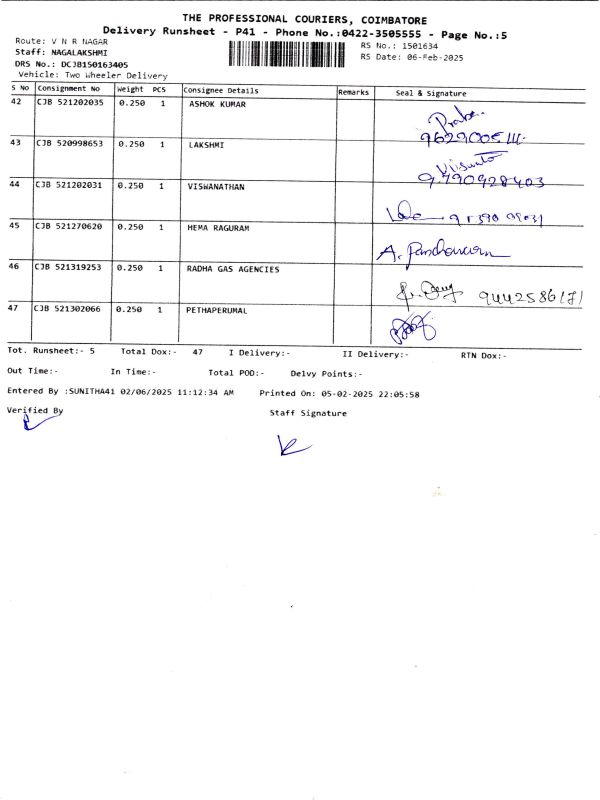 THE PROFESSIONAL COURIERS, COIMBATORE
Delivery Runsheet - P41 - Phone No.:0422-3505555 - Page No.:5
Route: V N R NAGAR
RS No.: 1501634
Staff: NAGALAKSHMI
RS Date: 06-Feb-2025
DRS No.: DCJB150163405
Vehicle: Two Wheeler Delivery
S No Consignment No Weight PCS Consignee Details Remarks Seal & Signature
42 CJB 521202035 0.250 1 ASHOK KUMAR
43 CJB 520998653 0.250 1 LAKSHMI
Viswato
44 CJB 521202031 0.250 1 VISWANATHAN
45 CJB 521270620 0.250 1 HEMA RAGURAM
46 CJB 521319253 0.250 1 RADHA GAS AGENCIES
47 CJB 521302066 0.250 1 PETHAPERUMAL
Tot. Runsheet:- 5 Total Dox:- 47 I Delivery:- II Delivery:- RTN Dox:-
Out Time:- In Time:- Total POD:- Delvy Points:-
Entered By :SUNITHA41 02/06/2025 11:12:34 AM Printed On: 05-02-2025 22:05:58
Verified By Staff Signature